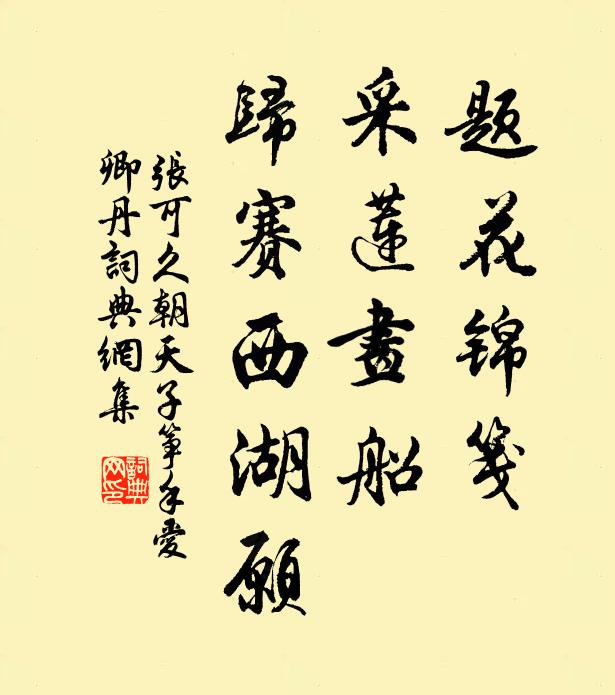 题花锦笺
采蓮畫船
歸賽西湖願
張可久朝天子箏手愛
卿丹詞典網集
詞典
网印